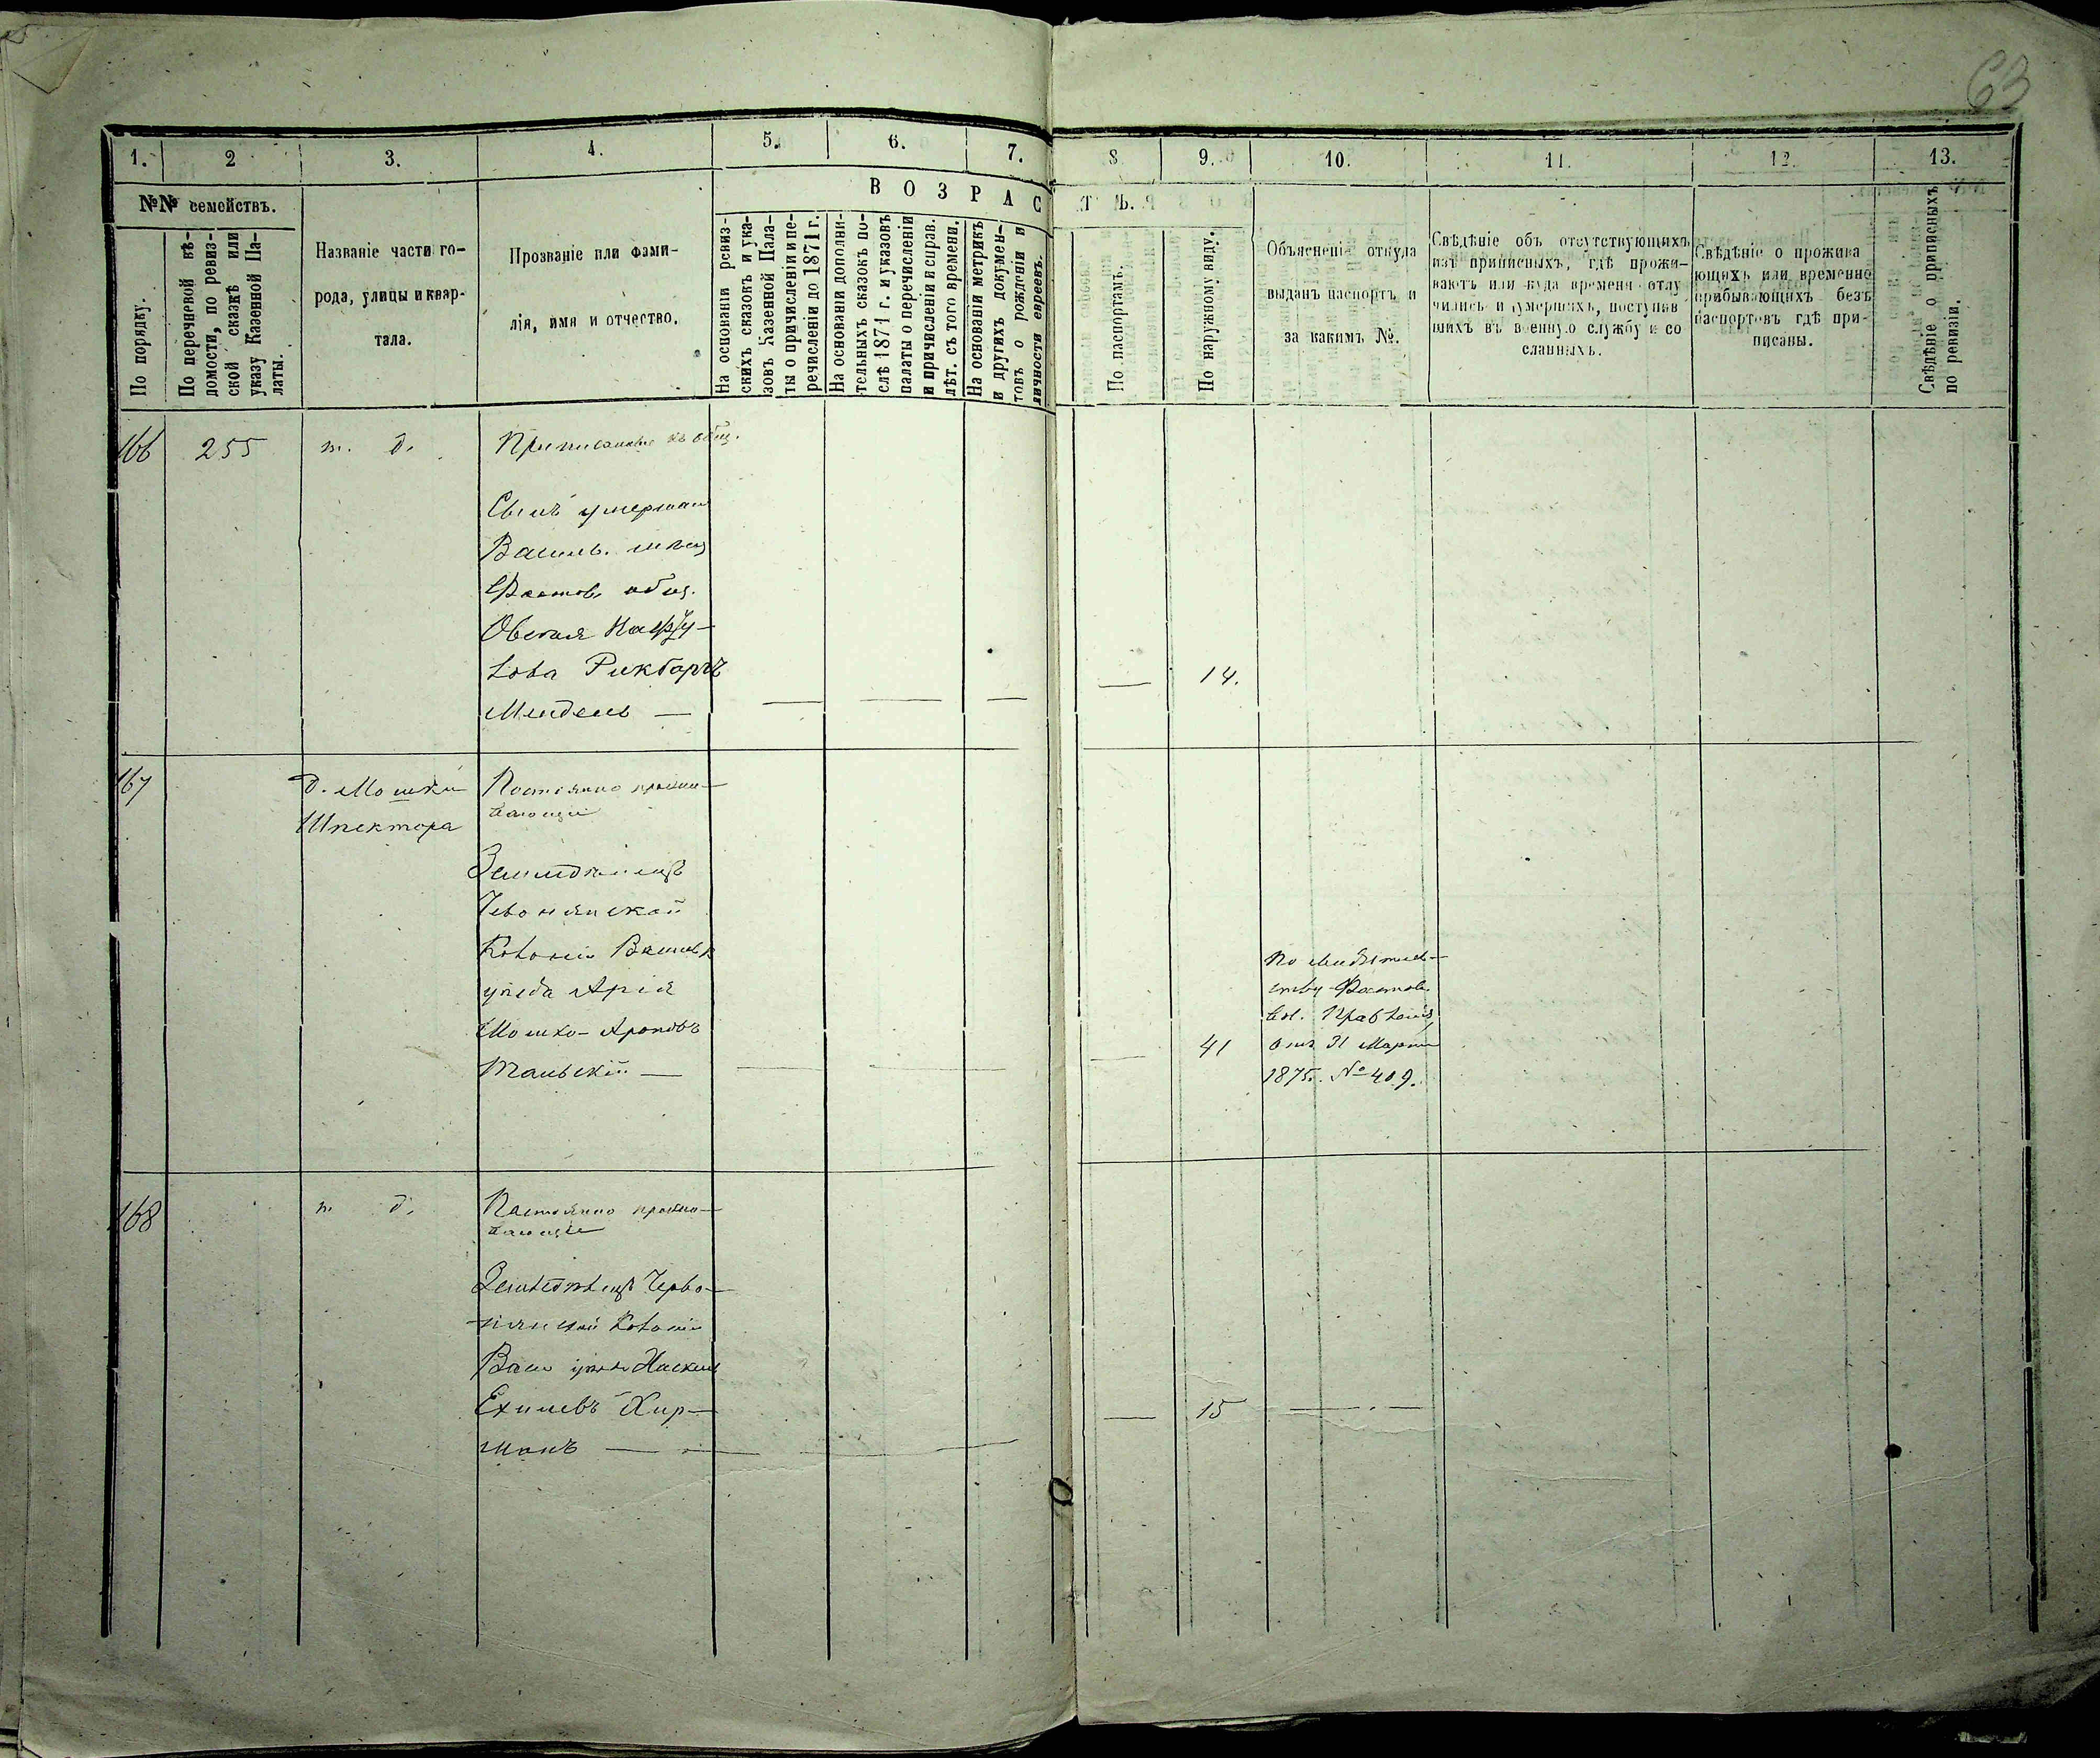 63
1. 2 3. 4. 5. 6. 7. 8 9. 10. 11. 12. 13.
№№ семействъ.
ВОЗРАСТЪ.
По порядку.
По перечневой вѣ-
домости, по ревиз-
ской сказкѣ или
указу Казенной Па-
латы.
Названіе части го-
рода, улицы и квар-
тала.
Прозваніе или фами-
лія, имя и отчество.
На основаніи ревиз-
скихъ сказокъ и ука-
зовъ Казенной Пала-
ты о причисленіи и пе-
речисленіи до 1871 г.
На основаніи дополни-
тельныхъ сказокъ по-
слѣ 1871 г. и указовъ
палаты о перечисленіи
и причисленіи и справ.
лѣт. съ того времени.
На основаніи метрикъ
и другихъ докумен-
товъ о рожденіи и
личности евреевъ.
По паспортамъ.
По наружному виду.
Объясненіе откуда
выданъ паспортъ и
за какимъ №.
Свѣдѣніе объ отсутствующихъ
изъ приписныхъ, гдѣ прожи-
ваютъ или куда времени отлу
чились и умершихъ, поступив
шихъ въ военную службу и со
сланныхъ.
Свѣдѣніе о прожива
ющихъ или временно
прибывающихъ безъ
паспортовъ гдѣ при-
писаны.
Свѣдѣніе о приписныхъ
по ревизіи.
166 255 т. д. Приписанные къ общ.
Сынъ умершаго
Васильк. мѣщ
Фастов. общ.
Овсея Капу-
лова Рикбергъ
Мендель — 14.
167 д. Мошки Постоянно прожи-
Шпектора вающіе
Земледѣлецъ
Червонянской
Колоніи Васильк
уѣзда Арія
Мошко-Ароновъ
Тальскій — 41
По свидѣтель-
ству Фастов.
Вол. Правленія
отъ 31 Марта
1875. № 409.
168 т д. Постоянно прожи-
вающіе
Земледѣлецъ Черво-
нянской Колоніи
Васи уѣзда Хаскель
Ехилевъ Кир-
манъ — 15 —